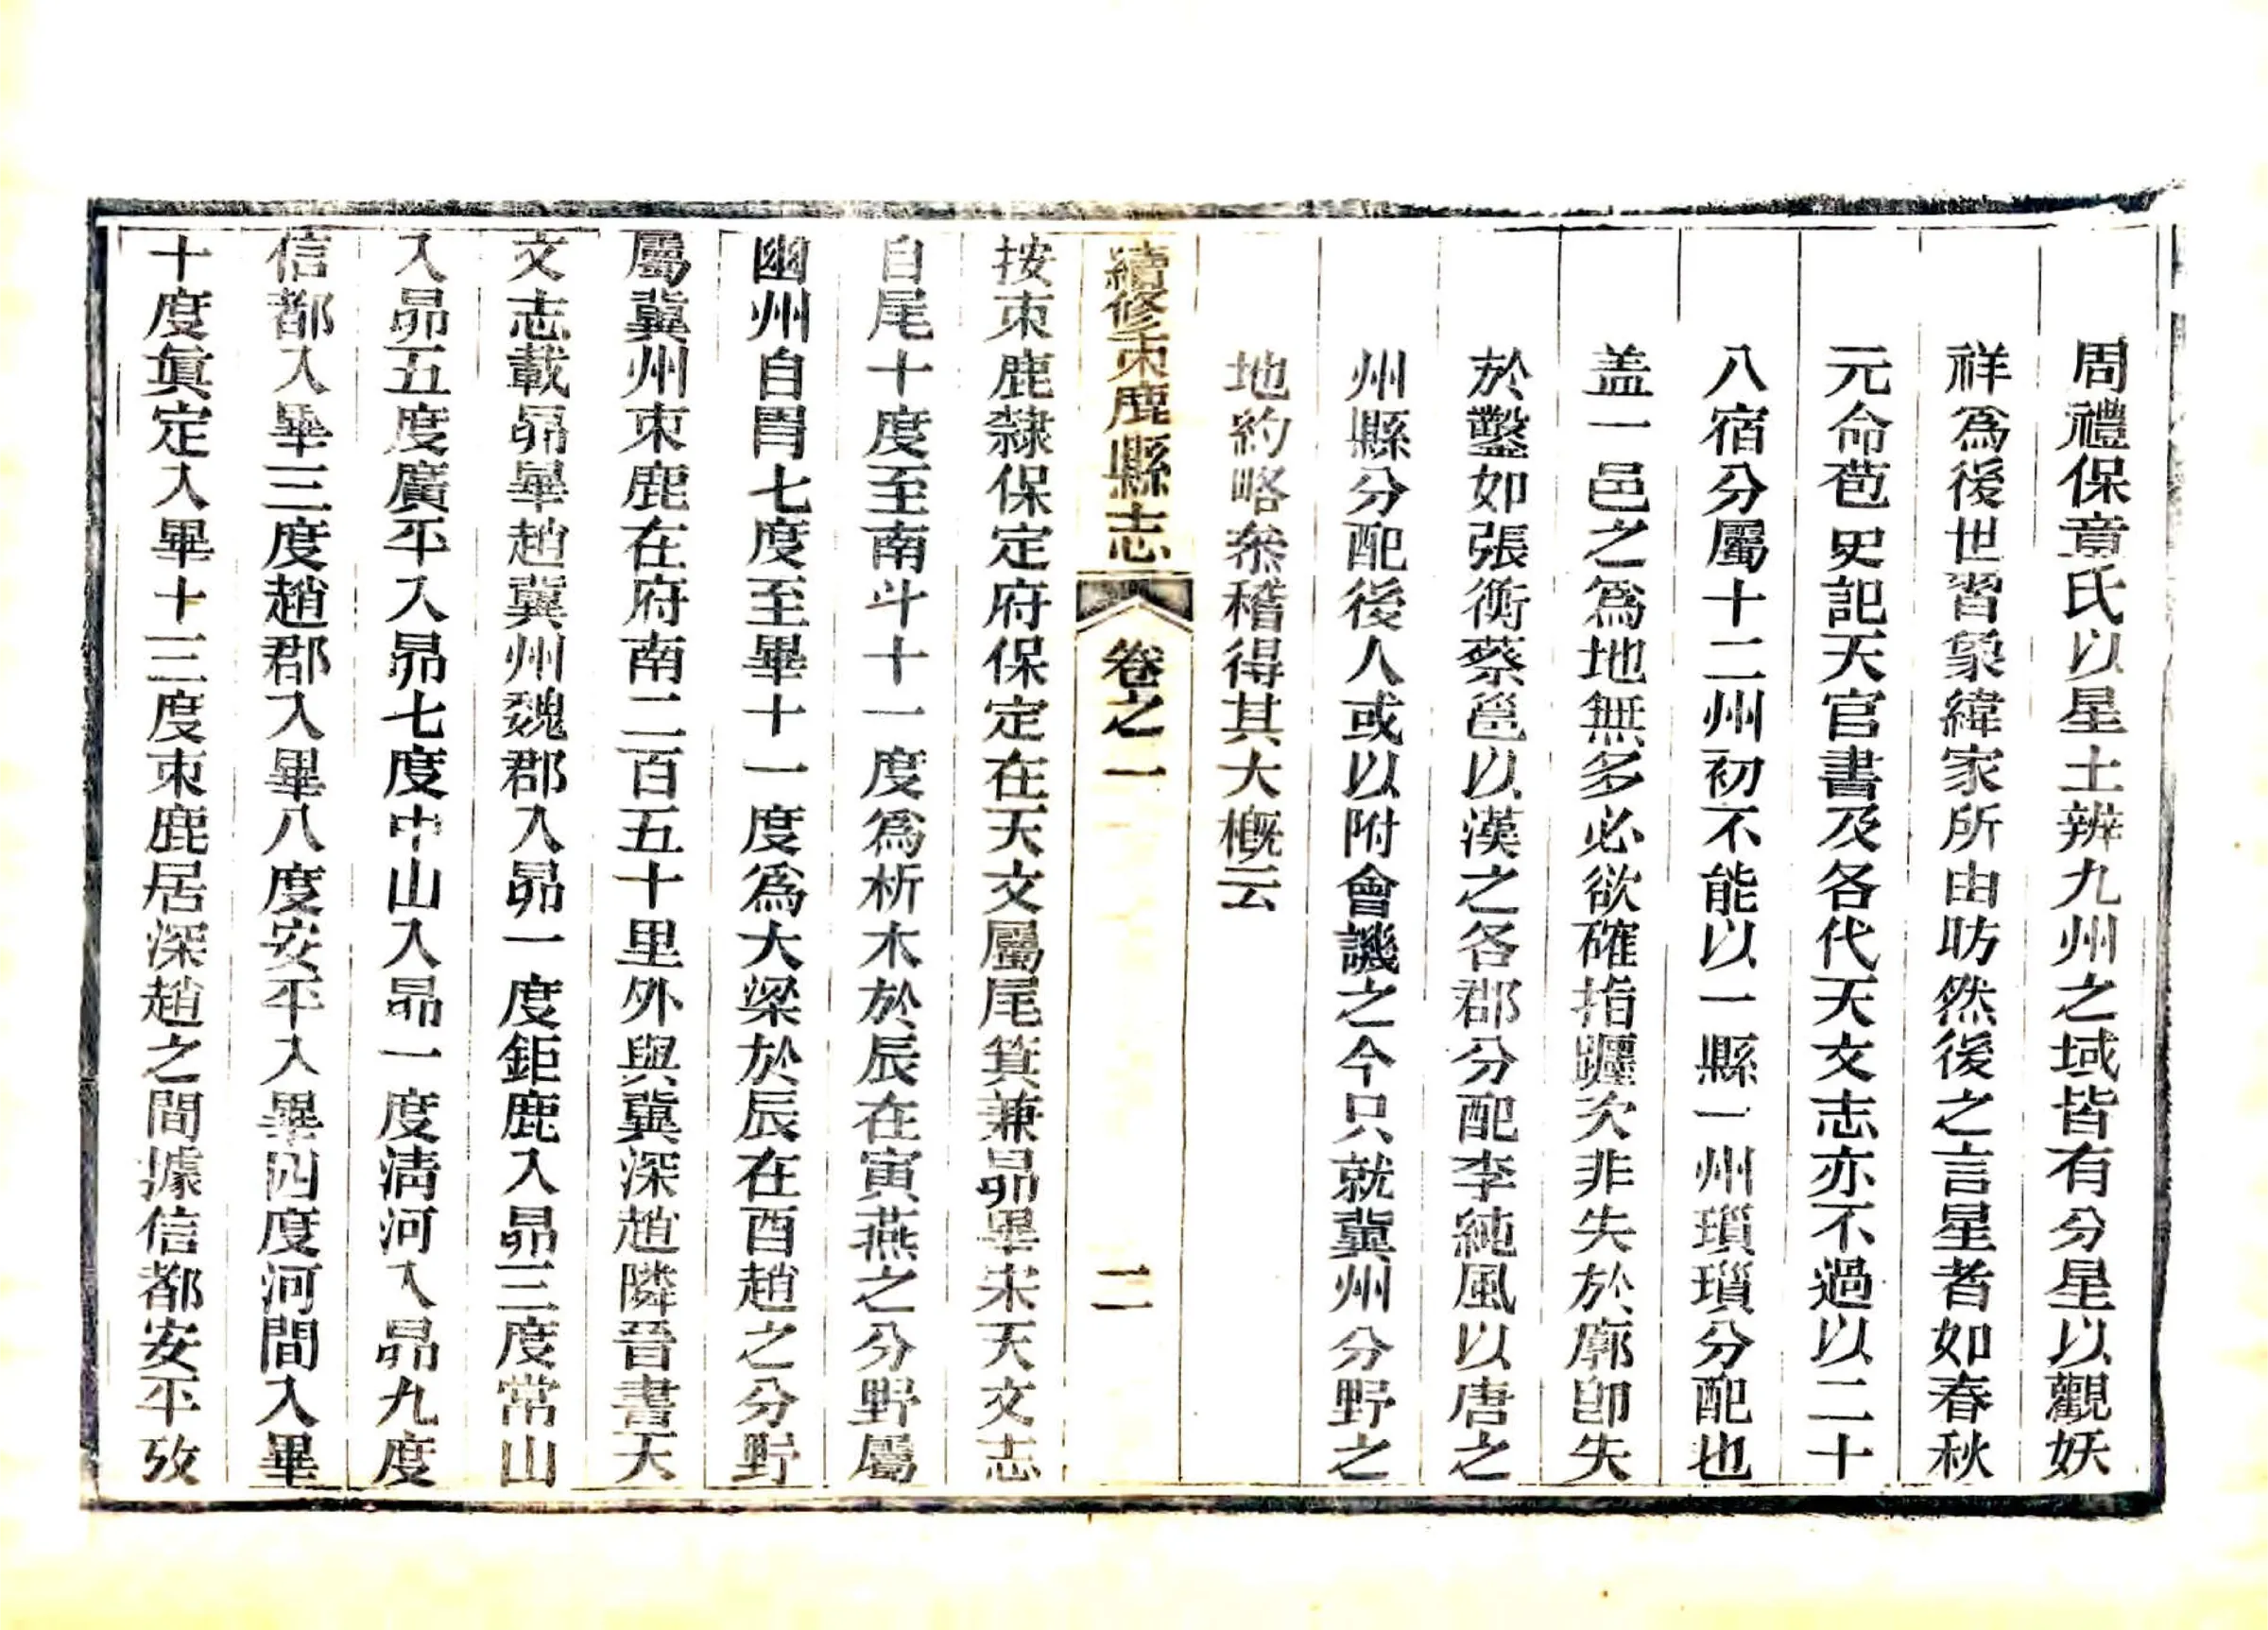 周禮保章氏以星土辨九州之域皆有分星以觀妖
祥爲後世習象緯家所由昉然後之言星者如春秋
元命苞史記天官書及各代天文志亦不過以二十
八宿分屬十二州初不能以一縣一州瑣瑣分配也
盖一邑之爲地無多必欲確指躔次非失於廓卽失
於鑿如張衡蔡邕以漢之各郡分配李純風以唐之
州縣分配後人或以附會譏之今只就冀州分野之
地約略叅稽得其大概云
續修束鹿縣志 卷之一 二
按束鹿隸保定府保定在天文屬尾箕兼昴畢宋天文志
自尾十度至南斗十一度爲析木於辰在寅燕之分野屬
幽州自胃七度至畢十一度爲大梁於辰在酉趙之分野
屬冀州束鹿在府南二百五十里外與冀深趙隣晉書天
文志載昴畢趙冀州魏郡入昴一度鉅鹿入昴三度常山
入昴五度廣平入昴七度中山入昴一度淸河入昴九度
信都入畢三度趙郡入畢八度安平入畢四度河間入畢
十度眞定入畢十三度束鹿居深趙之間據信都安平攷